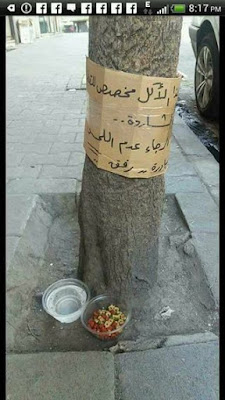 E
8:17 PM
الأكل مخصص
شاردة..
رجاء عدم اللمس
رفق